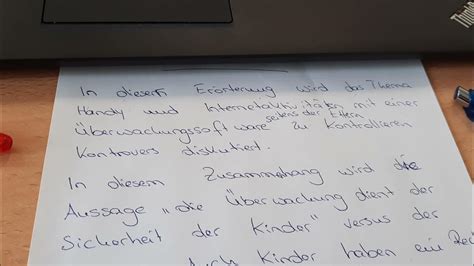 In diesem Erörterung wird das Thema
Handy und Internetaktivitäten mit einer
seitens der Eltern
Überwachungssoftware zu kontrollieren
kontrovers diskutiert.
In diesem Zusammenhang wird die
Aussage „die Überwachung dient der
Sicherheit der Kinder" versus der
auch Kinder haben ein